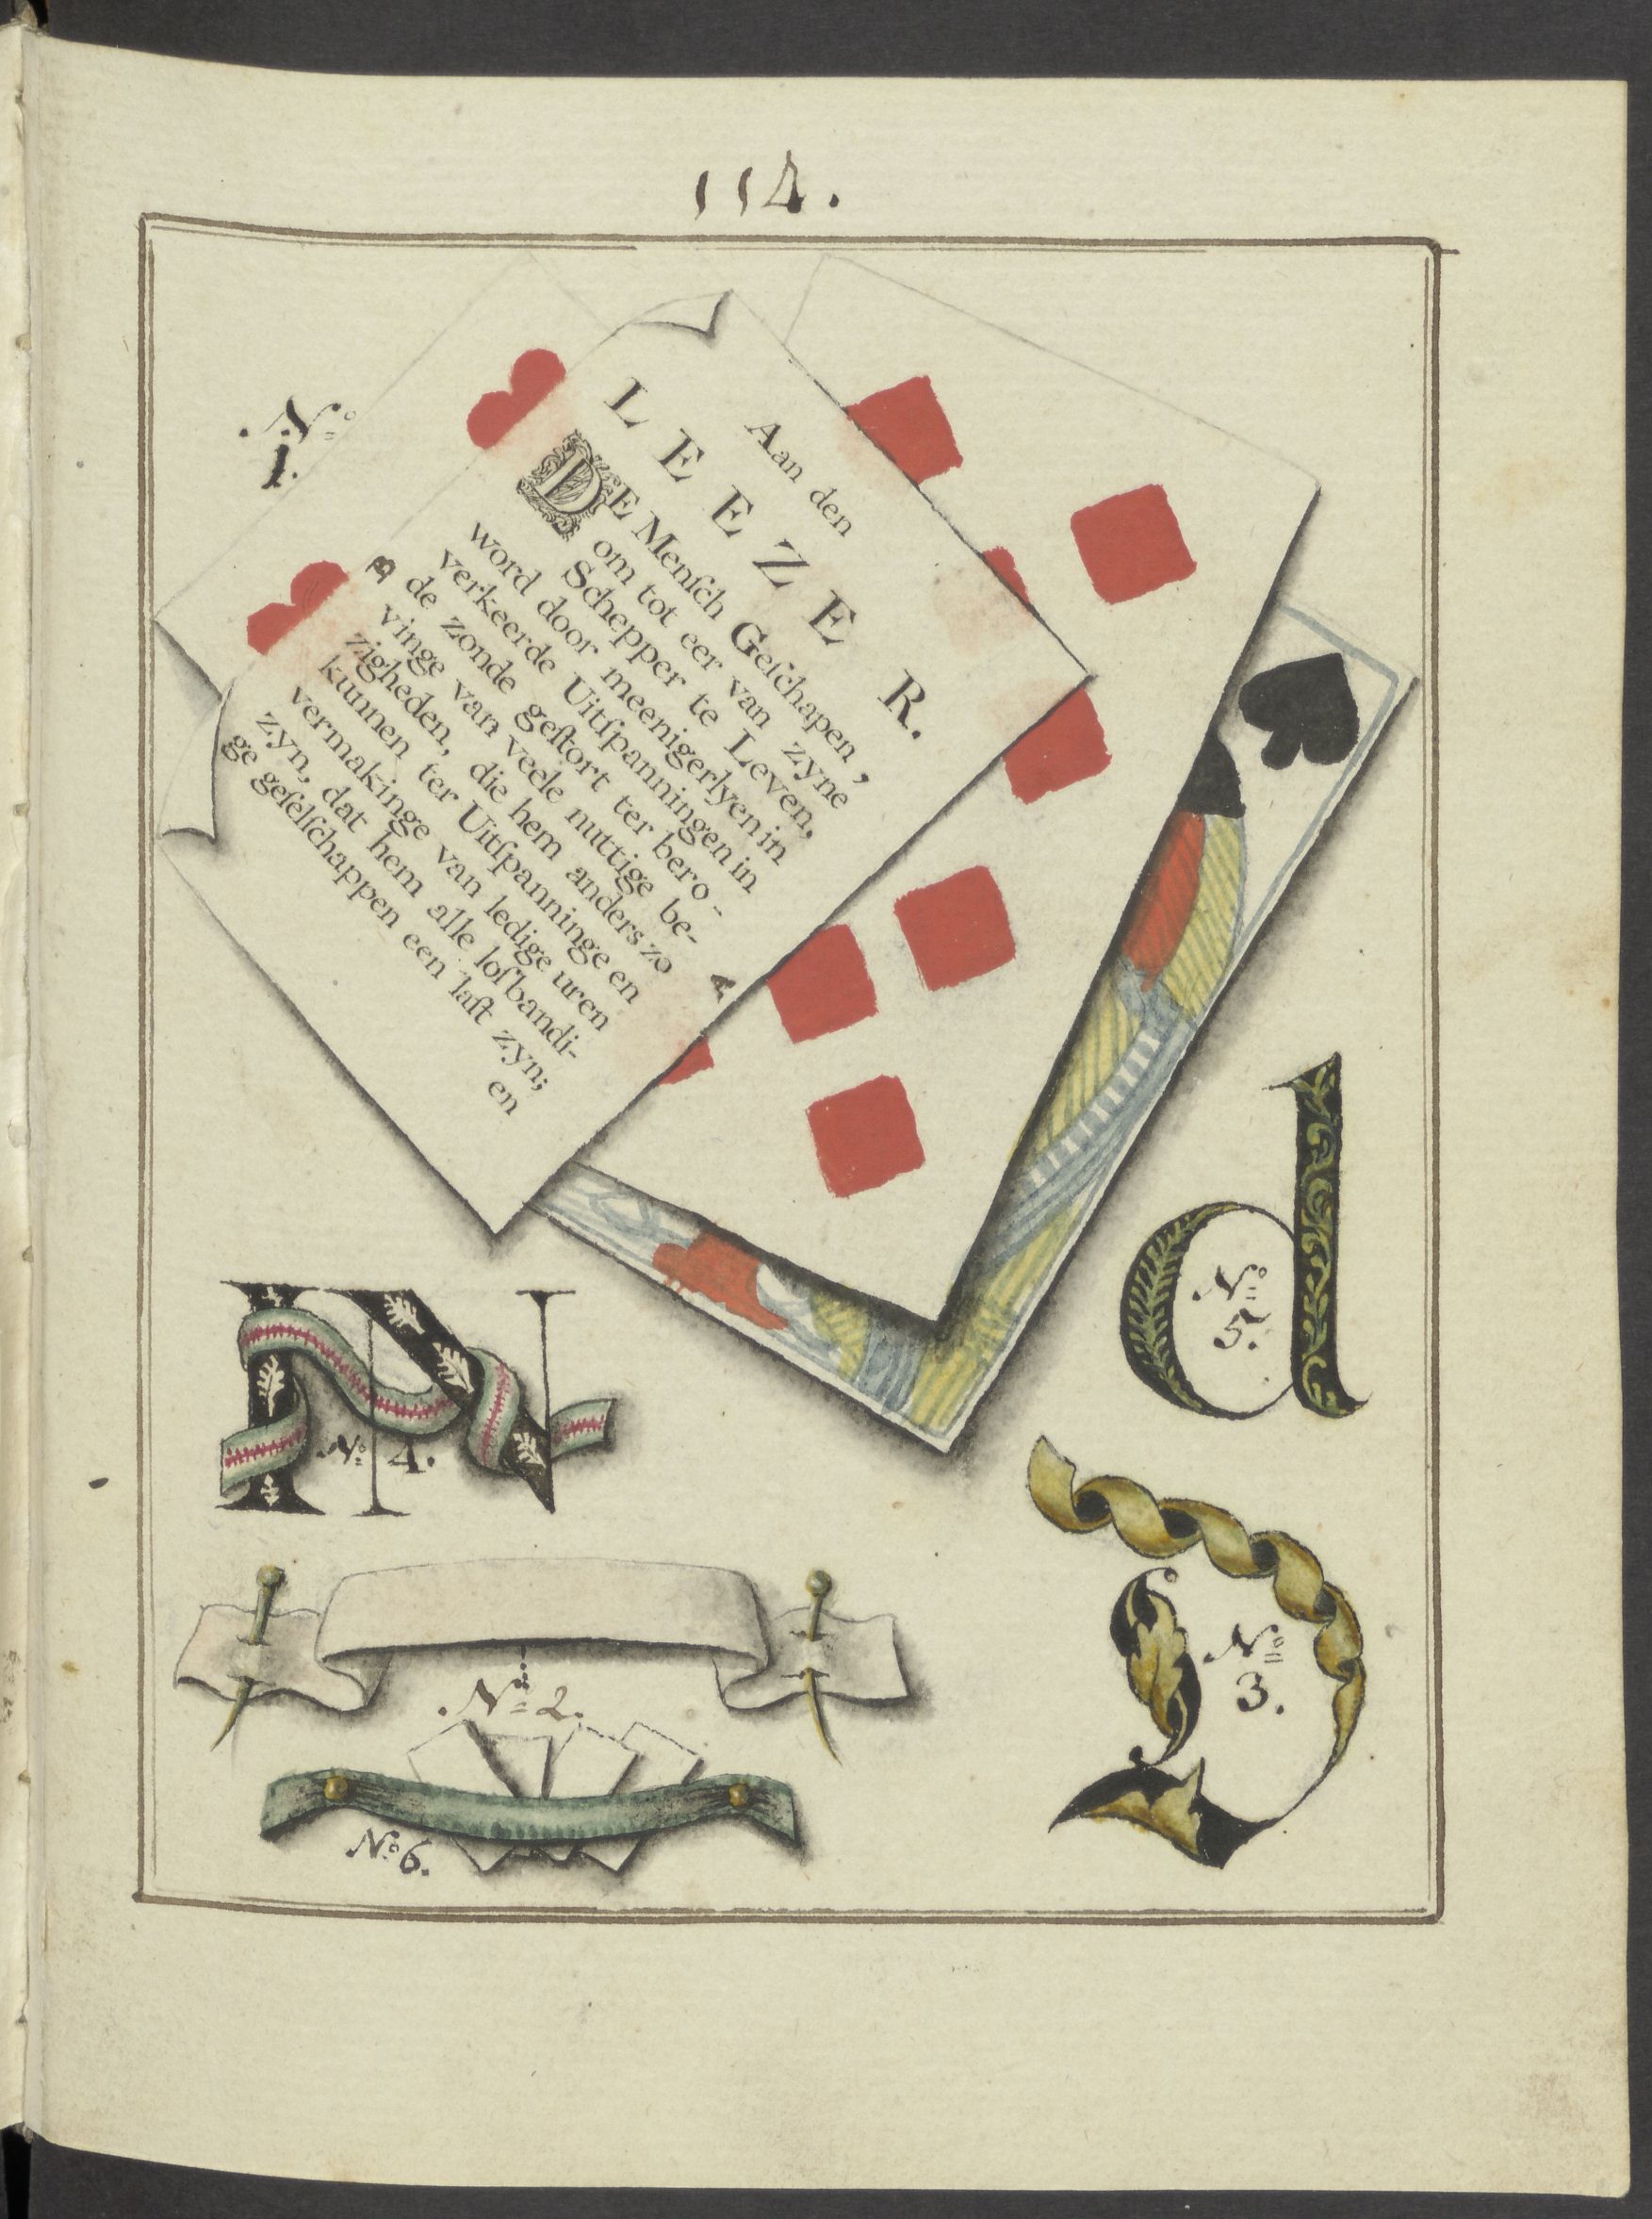 114.
N:o
1.
Aan den
LEEZER.
DE Menſch Geſchapen,
om tot eer van zyne
Schepper te Leven,
word door meenigerlyen in
verkeerde Uitſpanningen in
B de zonde geſtort ter bero-
vinge van veele nuttige be- A
zigheden, die hem anders zo
kunnen ter Uitſpanninge en
vermakinge van ledige uren
zyn, dat hem alle loſbandi-
ge geſelſchappen een laſt zyn;
en
N:o
5.
N:o 4.
N:o
3.
N:o 2.
N:o 6.